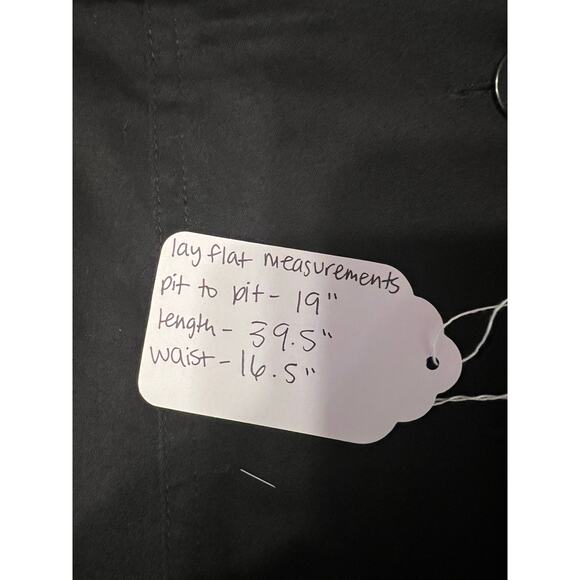 lay flat measurements
pit to pit - 19"
length - 39.5"
waist - 16.5"